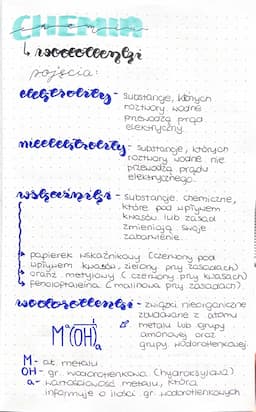 CHEMIA
chemia
↳ wodorotlenki
pojęcia:
elektrolity - substancje, których
roztwory wodne
przewodzą prąd
elektryczny.
nieelektrolity - substancje, których
roztwory wodne nie
przewodzą prądu
elektrycznego.
wskaźniki - substancje chemiczne,
które pod wpływem
kwasów lub zasad
zmieniają swoje
zabarwienie.
papierek wskaźnikowy (czerwony pod
wpływem kwasów, zielony przy zasadach)
oranż metylowy (czerwony przy kwasach)
fenoloftaleina (malinowa przy zasadach)
wodorotlenki - związki nieorganiczne
zbudowane z atomu
metalu lub grupy
amonowej oraz
grupy wodorotlenowej.
Mᵃ(OH)ₐ
M - at. metalu
OH - gr. wodorotlenowa (hydroksylowa)
a - wartościowość metalu, która
informuje o ilości gr. wodorotlenowych